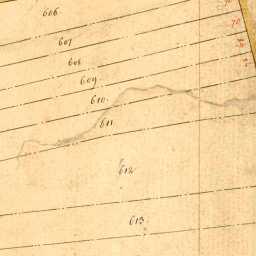 606
607
608
609
610
611
612
613
70